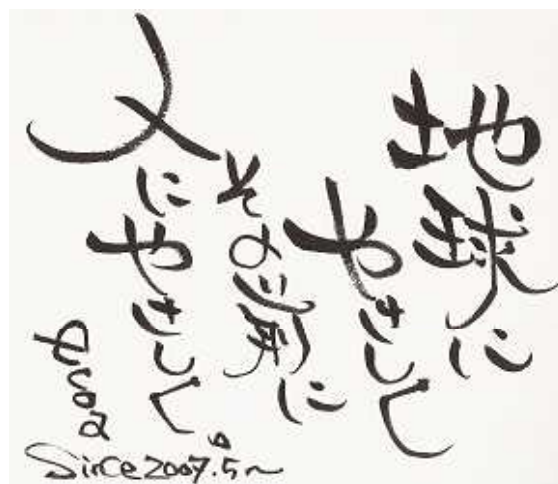 地球に
やさしく
その涙に
人にやさしく。
Since 2007.5～